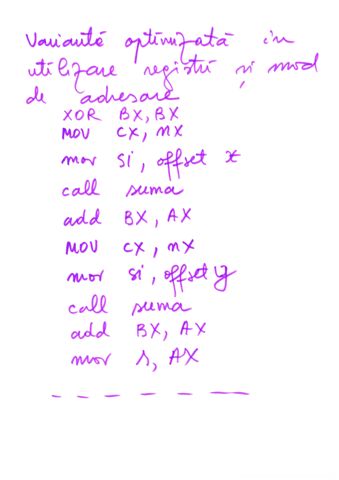 Variantă optimizată în
utilizare regiștri și mod
de adresare
XOR BX, BX
MOV CX, nx
mov si, offset x
call suma
add BX, AX
MOV CX, nx
mov si, offset y
call suma
add BX, AX
mov s, AX